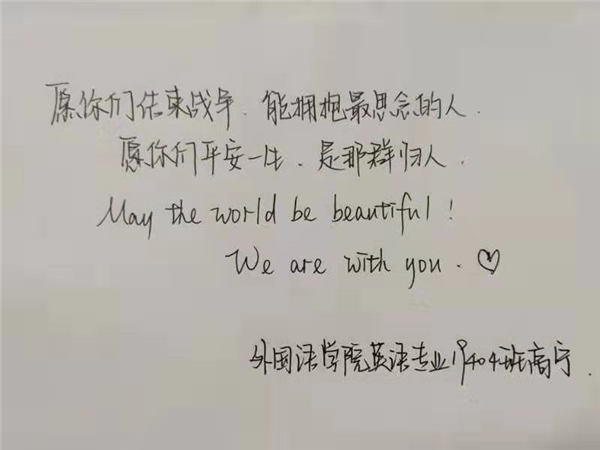 愿你们结束战争.能拥抱最思念的人.
愿你们平安一生.是那群归人.
May the world be beautiful!
We are with you. ♡
外国语学院英语专业19404班高宁.